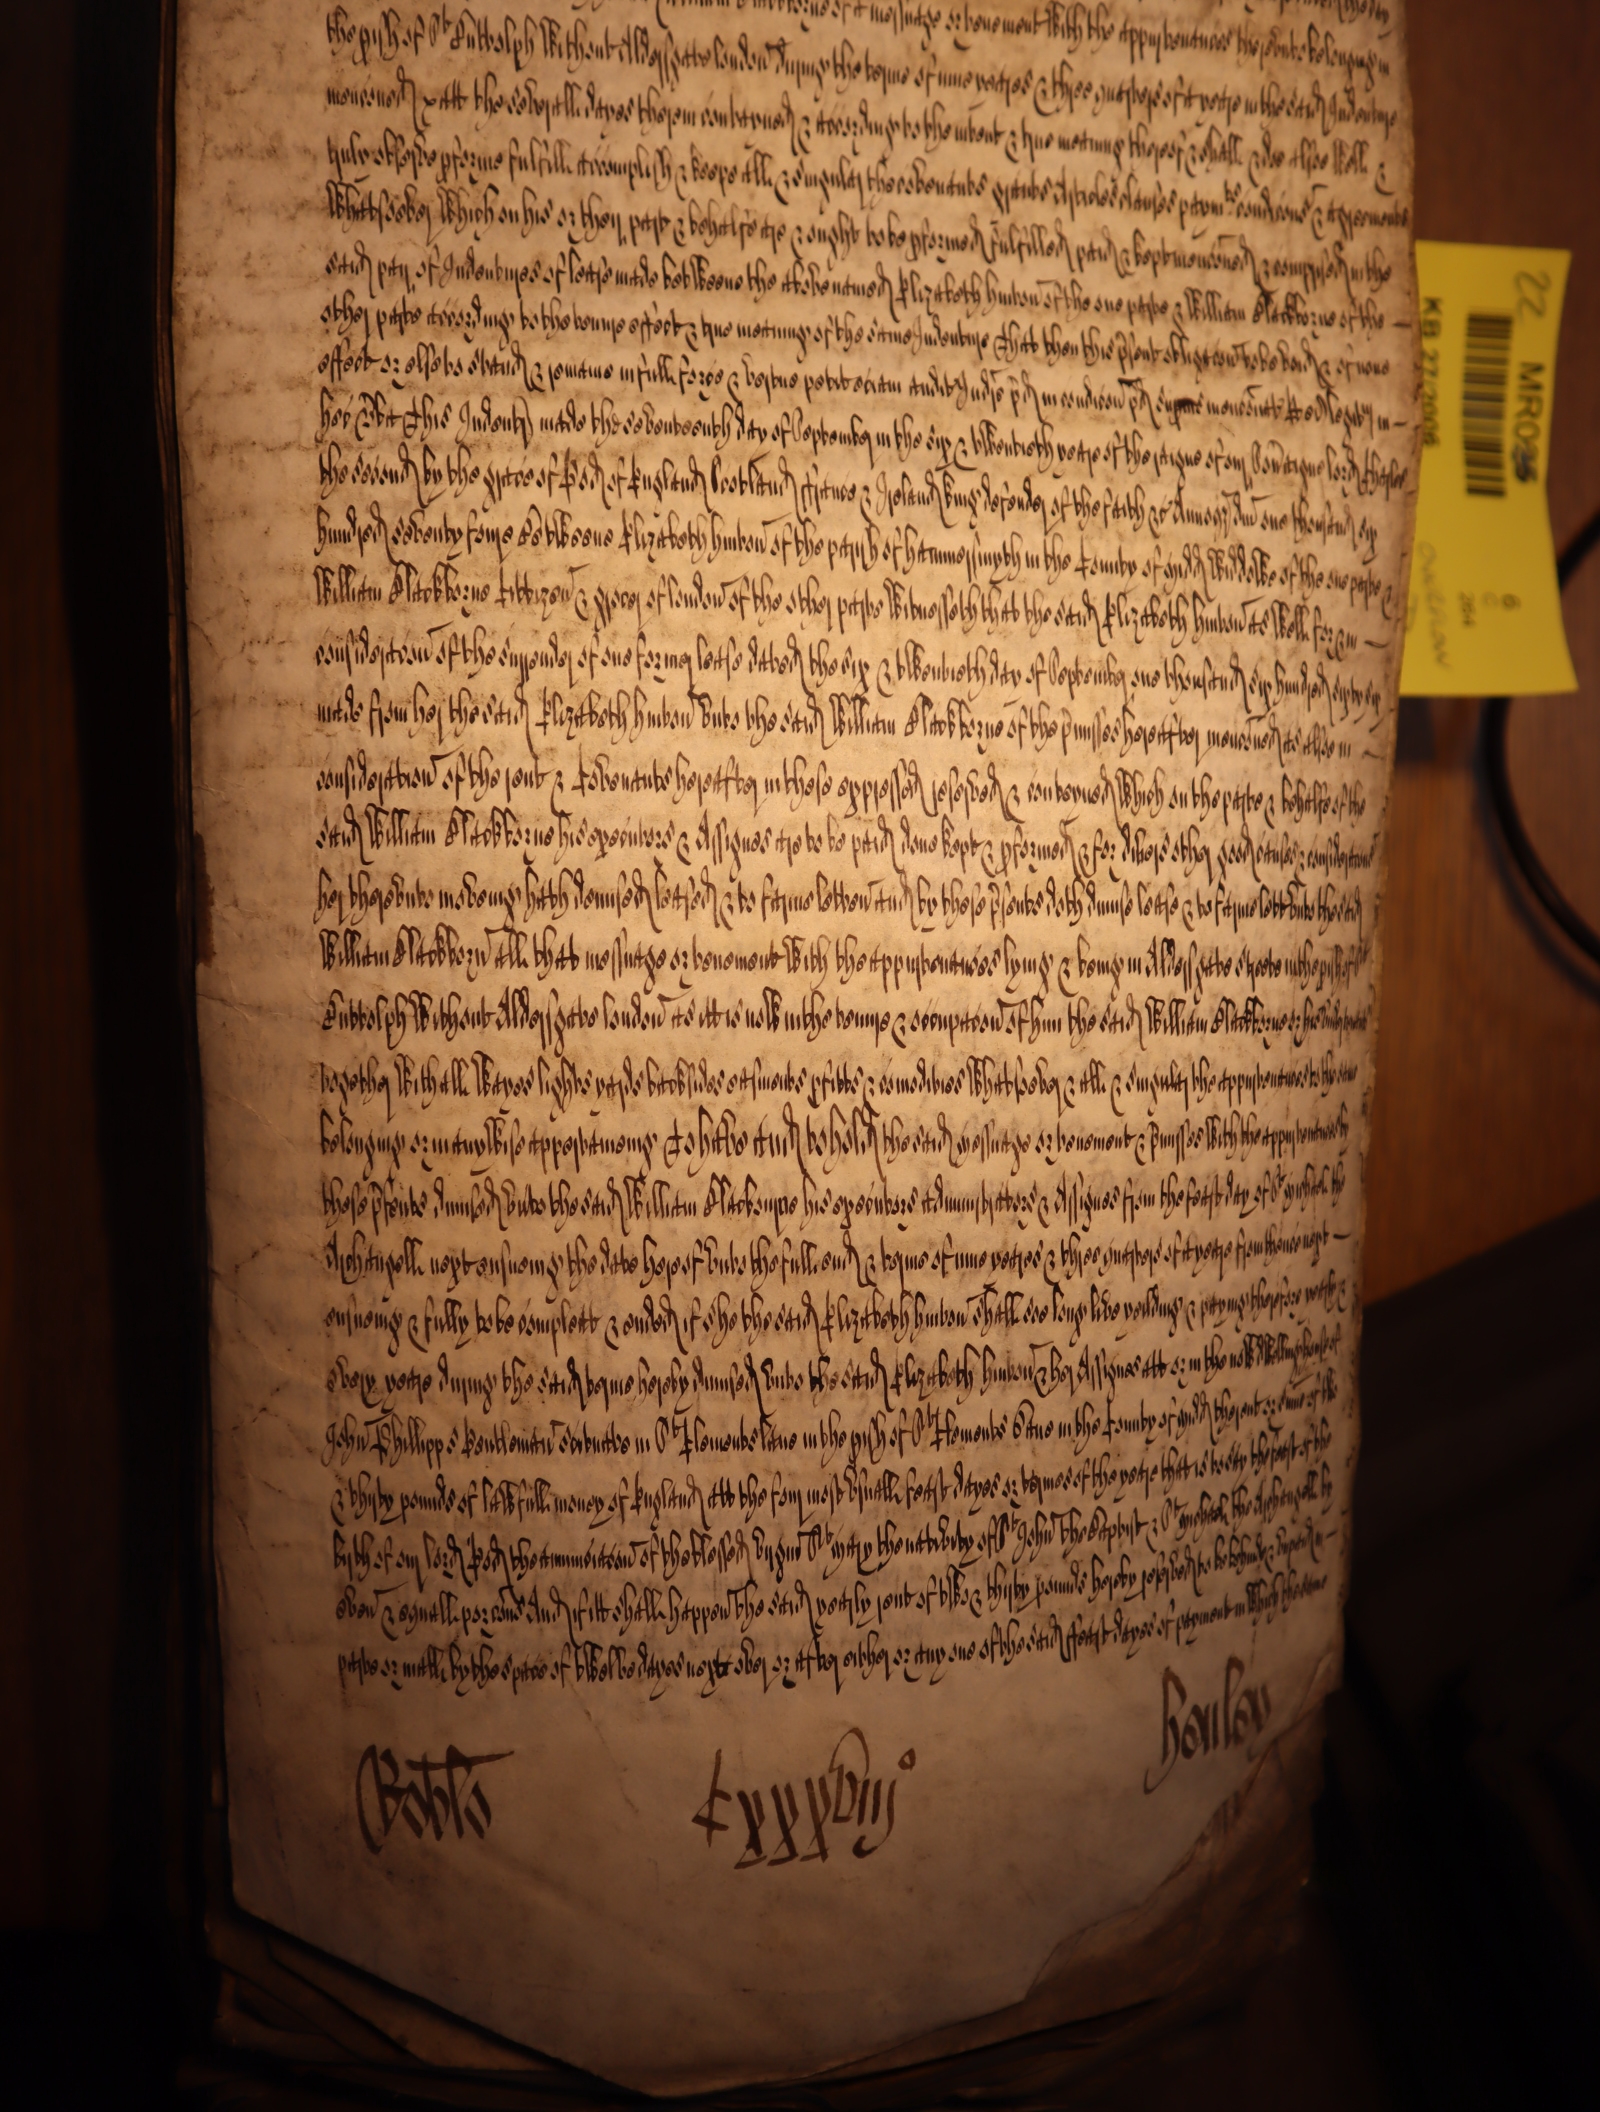 the pish of St Buttolph Without Aldersgate london during the terme of nine yeares & three quarters of a yeare in the said Indenture
menconed att the severall dayes therein conteyned & according to the intent & true meaning thereof & shall & doe alsoe Well &
truly observe pforme fulfill accomplish & keepe all & singular the covenants graunts Articles clauses paymts condicons & agreements
Whatsoever Which on his or their part & behalfe are & ought to be pformed fulfilled paid & kept menconed & comprised in the
said pair of Indentures of lease made betweene the abovenamed Elizabeth hinton of the one parte & William Blackborne of the
other parte according to the tennor effect & true meaning of the same Indenture That then this psent obligacon to be void & of none
effect or else to stand & remaine in full force & vertue petit eciam audit Indre pd in condicon pd menconat Et ei legitr in
hec verba This Indentr made the seventeenth day of September in the six & twentieth yeare of the raigne of our Soveraigne lord Charles
the second by the grace of God of England Scotland ffrance & Ireland King defender of the faith &c Annoqz Dni one thousand six
hundred seventy foure Betweene Elizabeth hinton of the parish of hammersmyth in the County of Midd Widdowe of the one parte &
William Blackborne Cittizen & grocer of london of the other parte Witnesseth that the said Elizabeth hinton as Well for & in
consideracon of the surrender of one former lease dated the six & twentieth day of September one thousand six hundred sixty six
made from her the said Elizabeth hinton unto the said William Blackborne of the pmisses hereafter menconed as alsoe in
consideracon of the rent & Covenants hereafter in these expressed reserved & conteyned Which on the parte & behalfe of the
said William Blackborne his executors & Assignes are to be paid done kept & pformed & for divers other good causes & consideracons
her thereunto moveing hath demised leased & to farme letten and by these psents doth dimise lease & to farme lett unto the said
William Blackborn all that messuage or tenement With the appurtenances lying & being in Aldersgate streete in the pish of St
Buttolph Without Aldersgate london as itt is now in the tenure & occupacon of him the said William Blackborne or his
together With all Wayes lights yards backsides easments pfitts & comodities Whatsoever & all & singular the appurtenances to the same
belonging or in any Wise apperteineing To have and to hold the said messuage or tenement & pmisses With the appurtenances by
these psents dimised unto the said William Blackborne his executors administrators & Assignes from the feast day of St Michaell the
Archangell next ensueing the date hereof unto the full end & terme of nine yeares & three quarters of a yeare from thence next
ensueing & fully to be compleat & ended if she the said Elizabeth hinton shall soe long live yeilding & paying therefore yearly &
every yeare during the said terme hereby dimised unto the said Elizabeth hinton & her Assignes att or in the now dwelling house of
John Phillipps Gentleman scituate in St Clements lane in the pish of St Clements Dane in the County of Midd the rent or sume of two
& thirty pounds of lawfull money of England att the four most usuall feast dayes or termes of the yeare that is to say the feast of the
birth of our lord God the annunciacon of the blessed virgine St Mary the nativity of St John the Baptist & St Michaell the Archangell by
even & equall porcons And if itt shall happen the said yearly rent of two & thirty pounds hereby reserved to be behinde & unpaid in
parte or in all by the space of twelve dayes next over or after either or any one of the said ffeast dayes of payment in Which the same
henley
Cxxxviijo
KB 27/2006
MR036
22